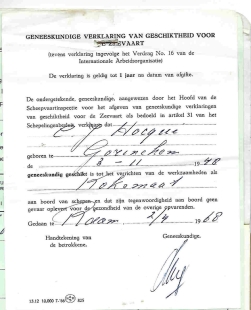 GENEESKUNDIGE VERKLARING VAN GESCHIKTHEID VOOR
DE ZEEVAART
(tevens verklaring ingevolge het Verdrag No. 16 van de
Internationale Arbeidsorganisatie)
De verklaring is geldig tot 1 jaar na datum van afgifte.
De ondergetekende, geneeskundige, aangewezen door het Hoofd van de
Scheepvaartinspectie voor het afgeven van geneeskundige verklaringen
van geschiktheid voor de Zeevaart als bedoeld in artikel 31 van het
Schepelingenbesluit, verklaart dat
Hocque
geboren te Gorinchem
11 1948
geneeskundig geschikt is tot het verrichten van de werkzaamheden als
Koksmaat
aan boord van schepen en dat zijn tegenwoordigheid aan boord geen
gevaar oplevert voor de gezondheid van de overige opvarenden.
Gedaan te R'dam 2/4 1968
Handtekening van de betrokkene.
Geneeskundige.